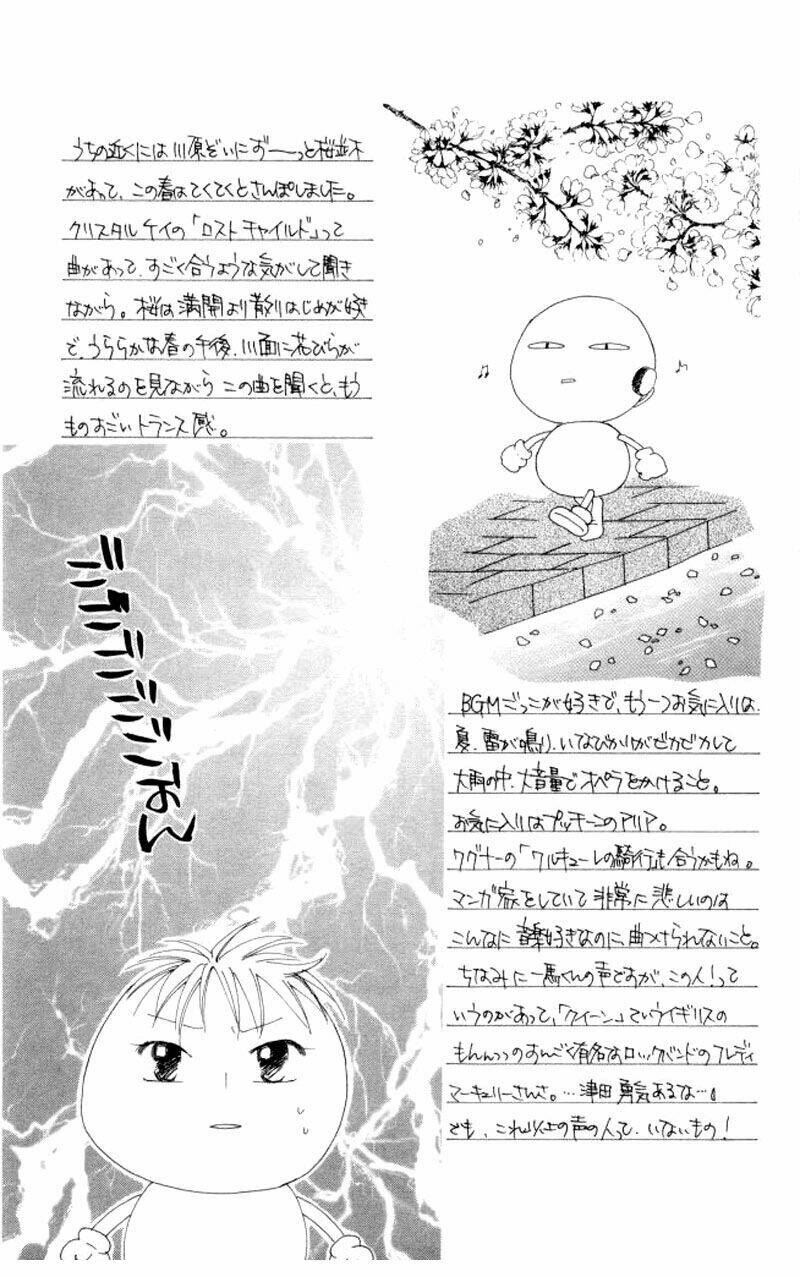 うちの近くには川原ぞいにずーっと桜並木
があって、この春はてくてくとさんぽしました。
クリスタルケイの「ロストチャイルド」って
曲があって、すごく合うような気がして聞き
ながら。桜は満開より散りはじめが好き
で、うららかな春の午後、川面に花びらが
流れるのを見ながら この曲を聞くと、もう
ものすごいトランス感。
BGMごっこが好きで、もう一つお気に入りは、
夏、雷が鳴り、いなびかりがピカピカして
大雨の中、大音量でオペラをかけること。
お気に入りはプッチーニのアリア。
ワグナーの「ワルキューレの騎行」も合うかもね。
マンガ家をしていて 非常に悲しいのは
こんなに音楽好きなのに、曲つけられないこと。
ちなみに一馬くんの声ですが、この人!って
いうのがあって、「クイーン」ていうイギリスの
もんんっっのすんごく有名なロックバンドのフレディ
マーキュリーさんさ。…津田 勇気あるな…。
でも、これ以上の声の人って、いないもの!